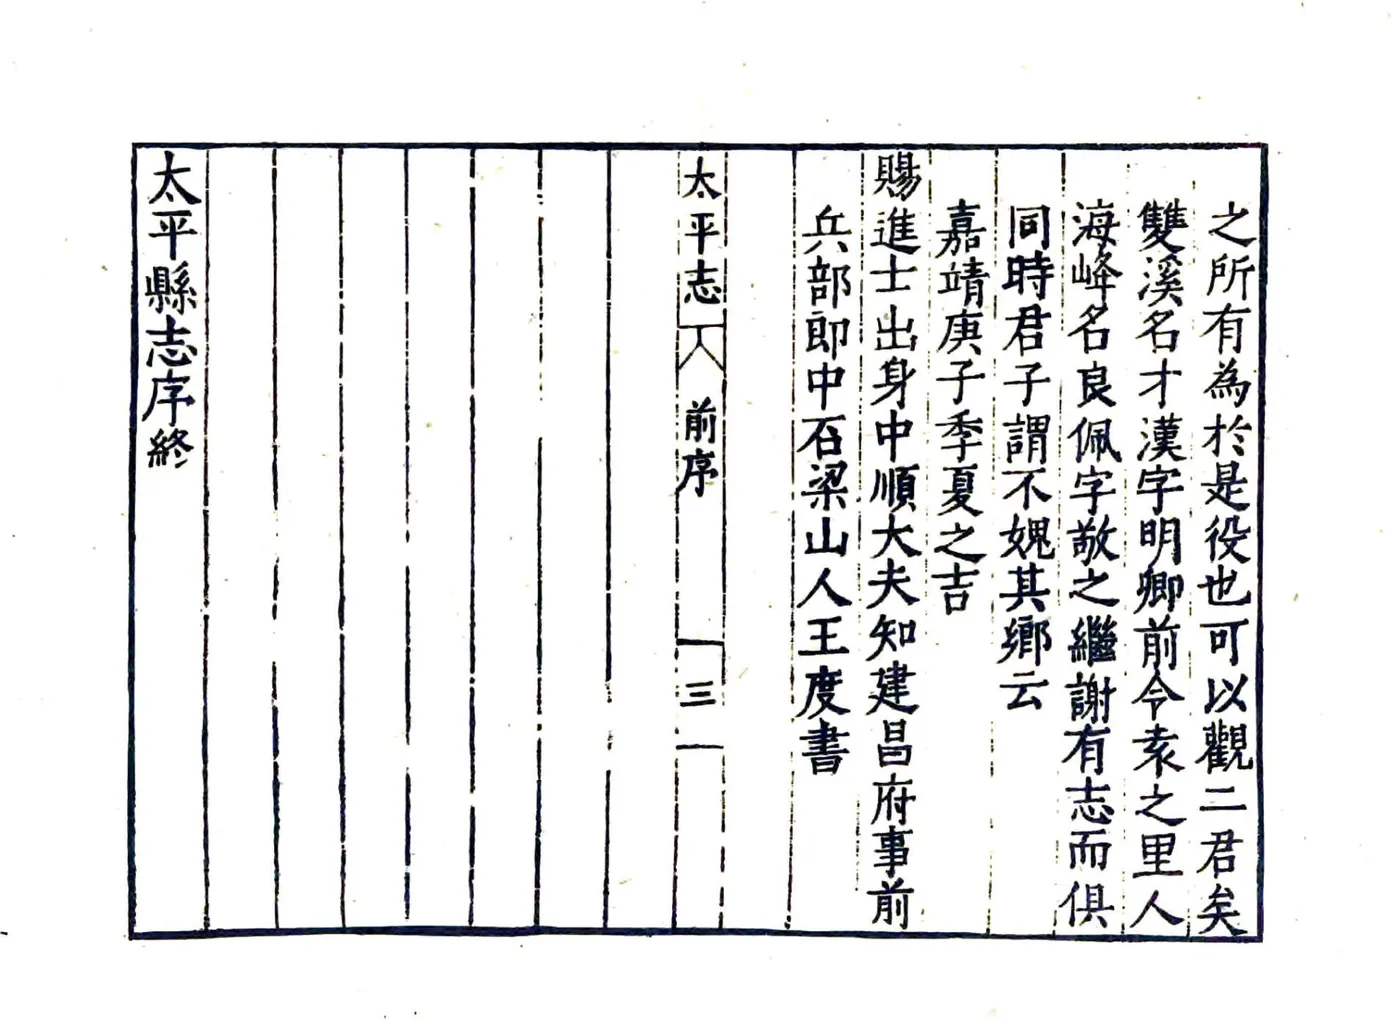 之所有為於是役也可以觀二君矣
雙溪名才漢字明卿前令袁之里人
海峰名良佩字敬之繼謝有志而俱
同時君子謂不媿其鄉云
嘉靖庚子季夏之吉
賜進士出身中順大夫知建昌府事前
兵部郎中石梁山人王度書
太平志 前序 三
太平縣志序終